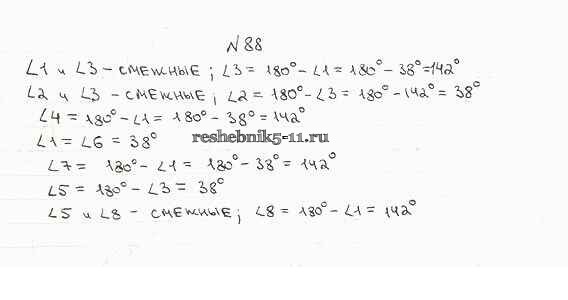 № 88
∠1 и ∠3 - смежные; ∠3 = 180° - ∠1 = 180° - 38° = 142°
∠2 и ∠3 - смежные; ∠2 = 180° - ∠3 = 180° - 142° = 38°
∠4 = 180° - ∠1 = 180° - 38° = 142°
∠1 = ∠6 = 38°
reshebnik5-11.ru
∠7 = 180° - ∠1 = 180° - 38° = 142°
∠5 = 180° - ∠3 = 38°
∠5 и ∠8 - смежные; ∠8 = 180° - ∠1 = 142°